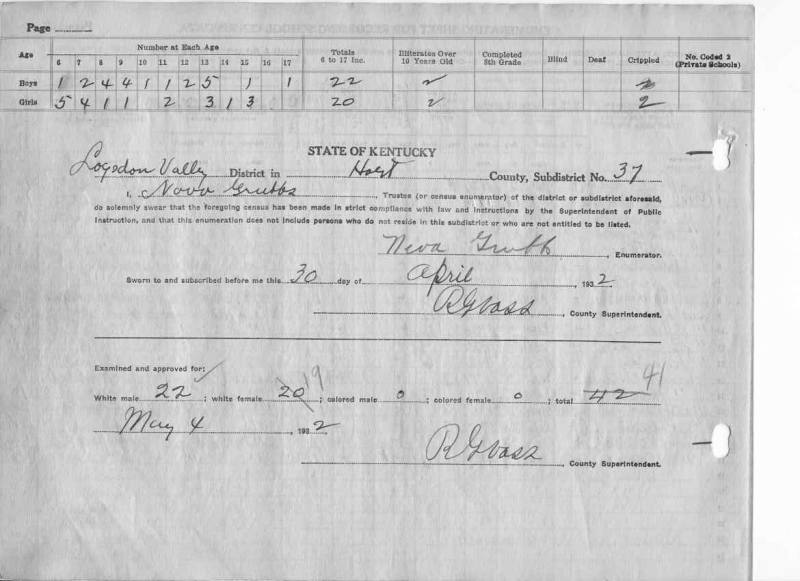 Page
Age Number at Each Age Totals 6 to 17 Inc. Illiterates Over 10 Years Old Completed 8th Grade Blind Deaf Crippled No. Coded 2 (Private Schools)
6 7 8 9 10 11 12 13 14 15 16 17
Boys 1 2 4 4 1 1 2 5 1 1 22 2 2
Girls 5 4 1 1 2 3 1 3 20 2 2
STATE OF KENTUCKY
Logsdon Vally District in Hart County, Subdistrict No. 37
I, Nova Grubbs, Trustee (or census enumerator) of the district or subdistrict aforesaid,
do solemnly swear that the foregoing census has been made in strict compliance with law and instructions by the Superintendent of Public
Instruction, and that this enumeration does not include persons who do not reside in this subdistrict or who are not entitled to be listed.
Neva Grubb, Enumerator.
Sworn to and subscribed before me this 30 day of April, 1932
R G Vass, County Superintendent.
Examined and approved for:
White male 22; white female 20 19; colored male 0; colored female 0; total 42 41
May 4, 1932
R G Vass
County Superintendent.